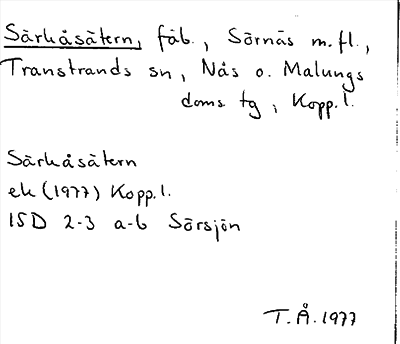 Särkåsätern, fäb., Sörnäs m.fl.,
Transtrands sn, Nås o. Malungs
doms tg, Kopp.l.
Särkåsätern
ek (1977) Kopp.l.
15D 2-3 a-b Sörsjön
T.Å. 1977